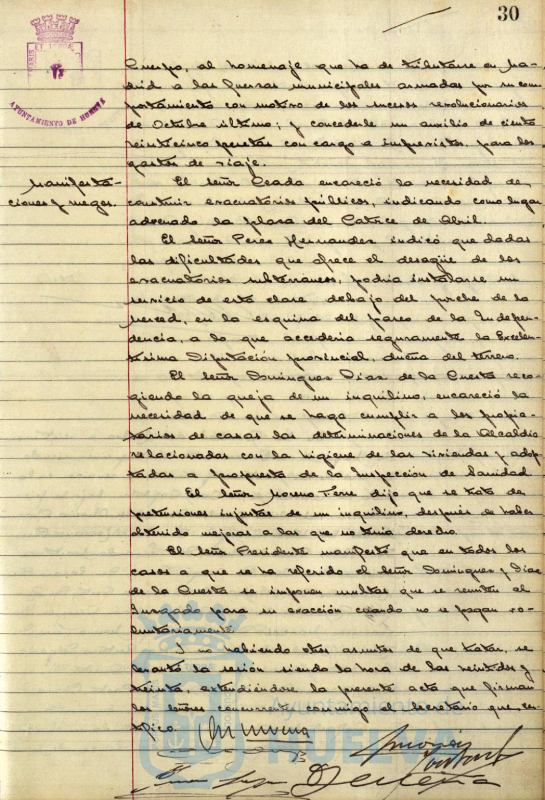 30
AYUNTAMIENTO DE HUELVA
Cuerpo, al homenaje que ha de tributarse en Ma-
drid a las Guardias municipales armadas por su com-
portamiento con motivo de los sucesos revolucionarios
de Octubre último; y concederle un auxilio de ciento
veinticinco pesetas con cargo a imprevistos, para los
gastos de viaje.
Manifesta-
ciones y ruegos.
El señor Ceada encareció la necesidad de
construir evacuatorios públicos, indicando como lugar
adecuado la plaza del Catorce de Abril.
El señor Perez Hernandez indicó que dadas
las dificultades que ofrece el desagüe de los
evacuatorios subterraneos, podria instalarse un
servicio de esta clase debajo del porche de la
Merced, en la esquina del paseo de la Indepen-
dencia, a lo que accederia seguramente la Excelen-
tisima Diputación provincial, dueña del terreno.
El señor Dominguez Diaz de la Cuesta reco-
giendo la queja de un inquilino, encareció la
necesidad de que se haga cumplir a los propie-
tarios de casas las determinaciones de la Alcaldia
relacionadas con la higiene de las viviendas y adop-
tadas a propuesta de la Inspección de Sanidad
El señor Moreno Ferre dijo que se trata de
pretensiones injustas de un inquilino, después de haber
obtenido mejoras a las que no tenia derecho.
El señor Presidente manifestó que en todos los
casos a que se ha referido el señor Dominguez y Diaz
de la Cuesta se imponen multas que se remiten al
Juzgado para su exacción cuando no se pagan vo-
luntariamente
I no habiendo otros asuntos de que tratar, se
levantó la sesión siendo la hora de las veintidos y
treinta, extendiéndose la presente acta que firman
los señores concurrentes conmigo el Secretario que cer-
tifico.
Ayuntamiento de
HUELVA